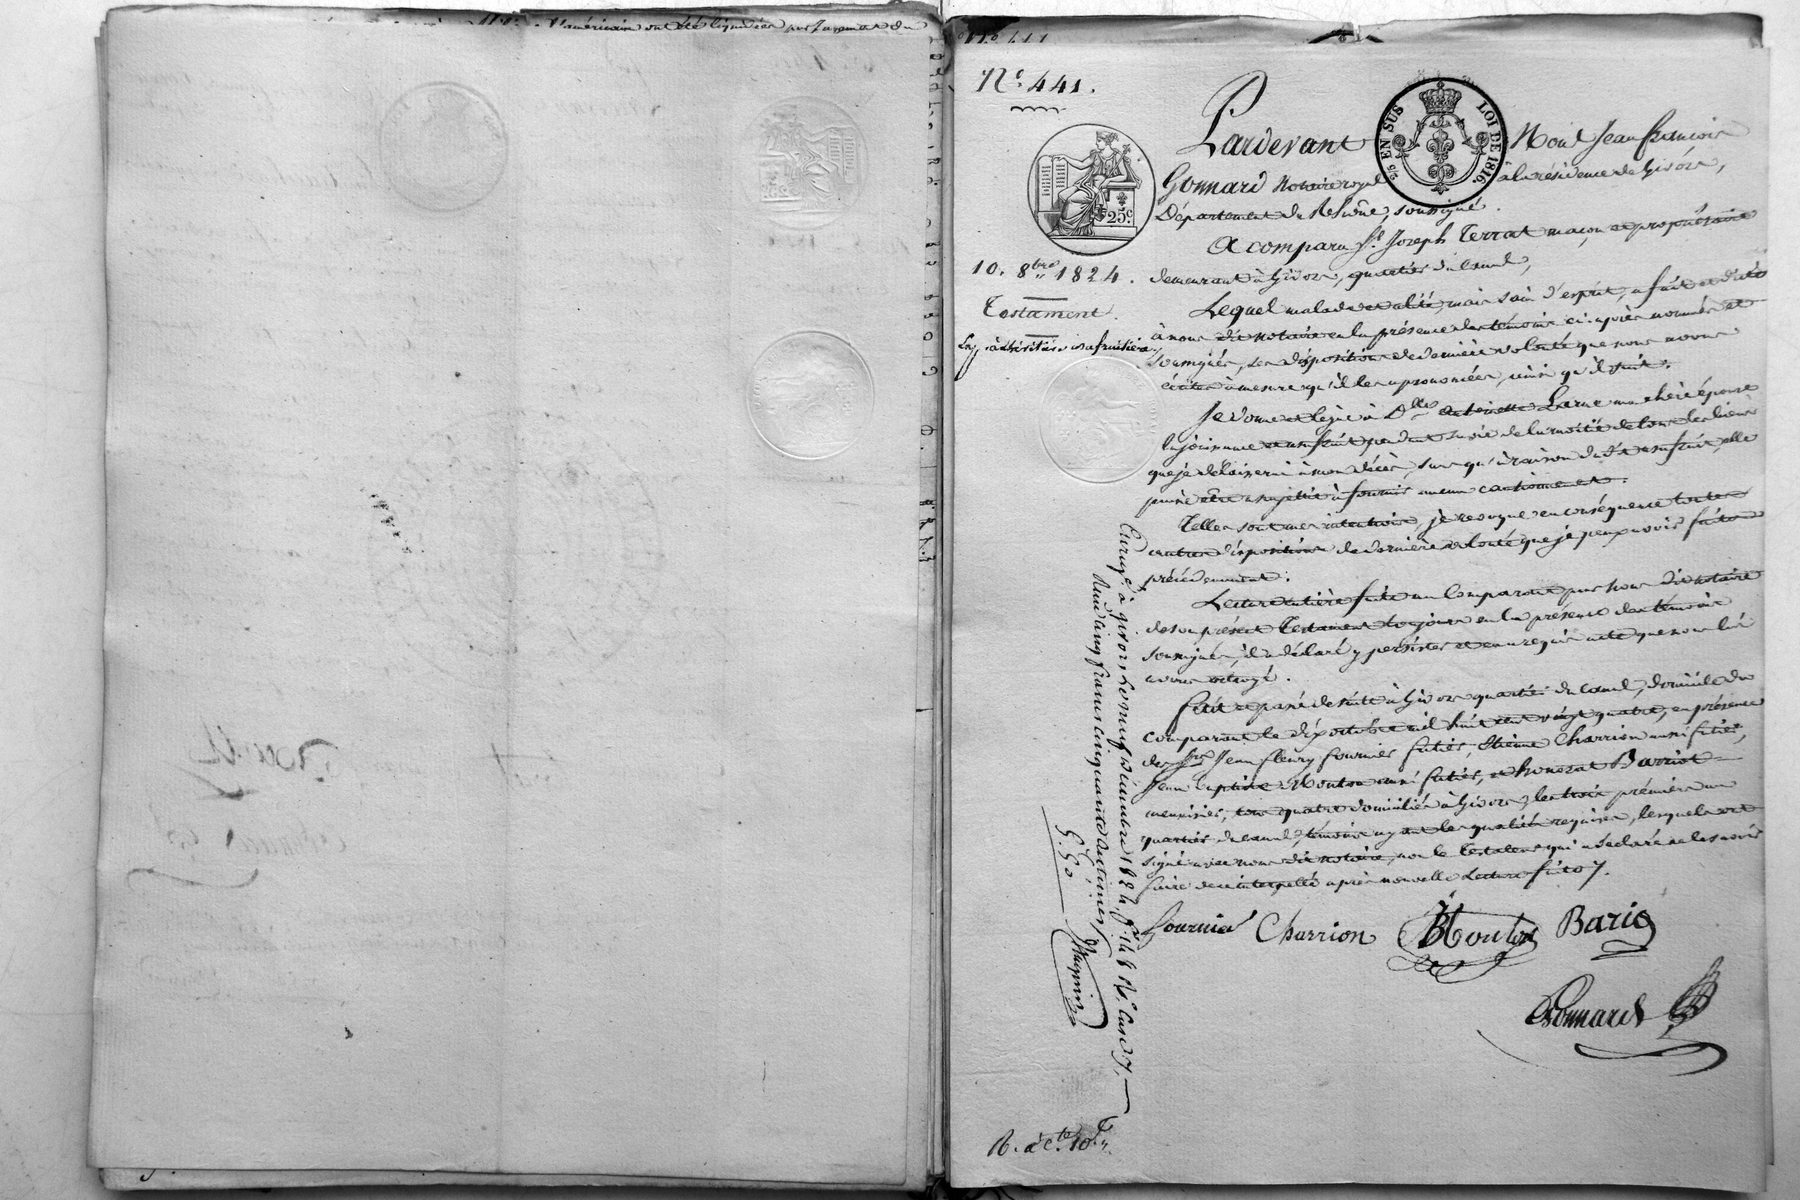 N.° 441.
Pardevant Nous Jean françois
2/5 EN SUS LOI DE 1816.
Gonnard Notaire royal à la résidence de Givors,
25c
Département du Rhône, soussigné.
A comparu Sr. Joseph Terrat maçon et propriétaire
10. 8bre 1824.
demeurant à Givors, quartier du Canal,
Testament.
Lequel malade et alité, mais sain d'esprit, a fait et dicté
à nous dit notaire en la présence des témoins ci-après nommés et
soussignés, ses dispositions de dernière volonté que nous avons
écrites à mesure qu'il les a prononcées, ainsi qu'il suit.
Je donne et lègue à Dlle Antoinette ma chère épouse
la jouissance et usufruit pendant sa vie de la moitié de tous les biens
que je délaisserai à mon décès, sans qu'à raison du dit usufruit, elle
puisse être assujettie à fournir aucun cautionnement.
Telles sont mes intentions, je révoque en conséquence toutes
autres dispositions de dernière volonté que je peux avoir faites
précédemment.
Lecture entière faite au Comparant par nous dit notaire
de son présent Testament toujours en la présence des témoins
soussignés, il a déclaré y persister et en a requis acte que nous lui
avons octroyé.
fait et passé de suite à Givors quartier du Canal, domicile du
comparant le dix octobre mil huit cent vingt quatre, en présence
des Srs Jean fleury fournier futier, Etienne Charrion aussi futier,
Jean Baptiste Mouton aussi futier, et honorat Barriot
menuisier, tous quatre domiciliés à Givors, les trois premiers au
quartier du Canal, témoins ayant les qualités requises, lesquels ont
signé avec nous dit notaire, non le Testateur qui a déclaré ne le savoir
faire de ce interpellé après nouvelle Lecture faite.
fournier Charrion BMouton Bario
Gonnard
Enregé à givors le neuf décembre 1824, fo 146 Ro Case 7,
Reçu cinq francs cinquante centimes
R. à Cte 10.